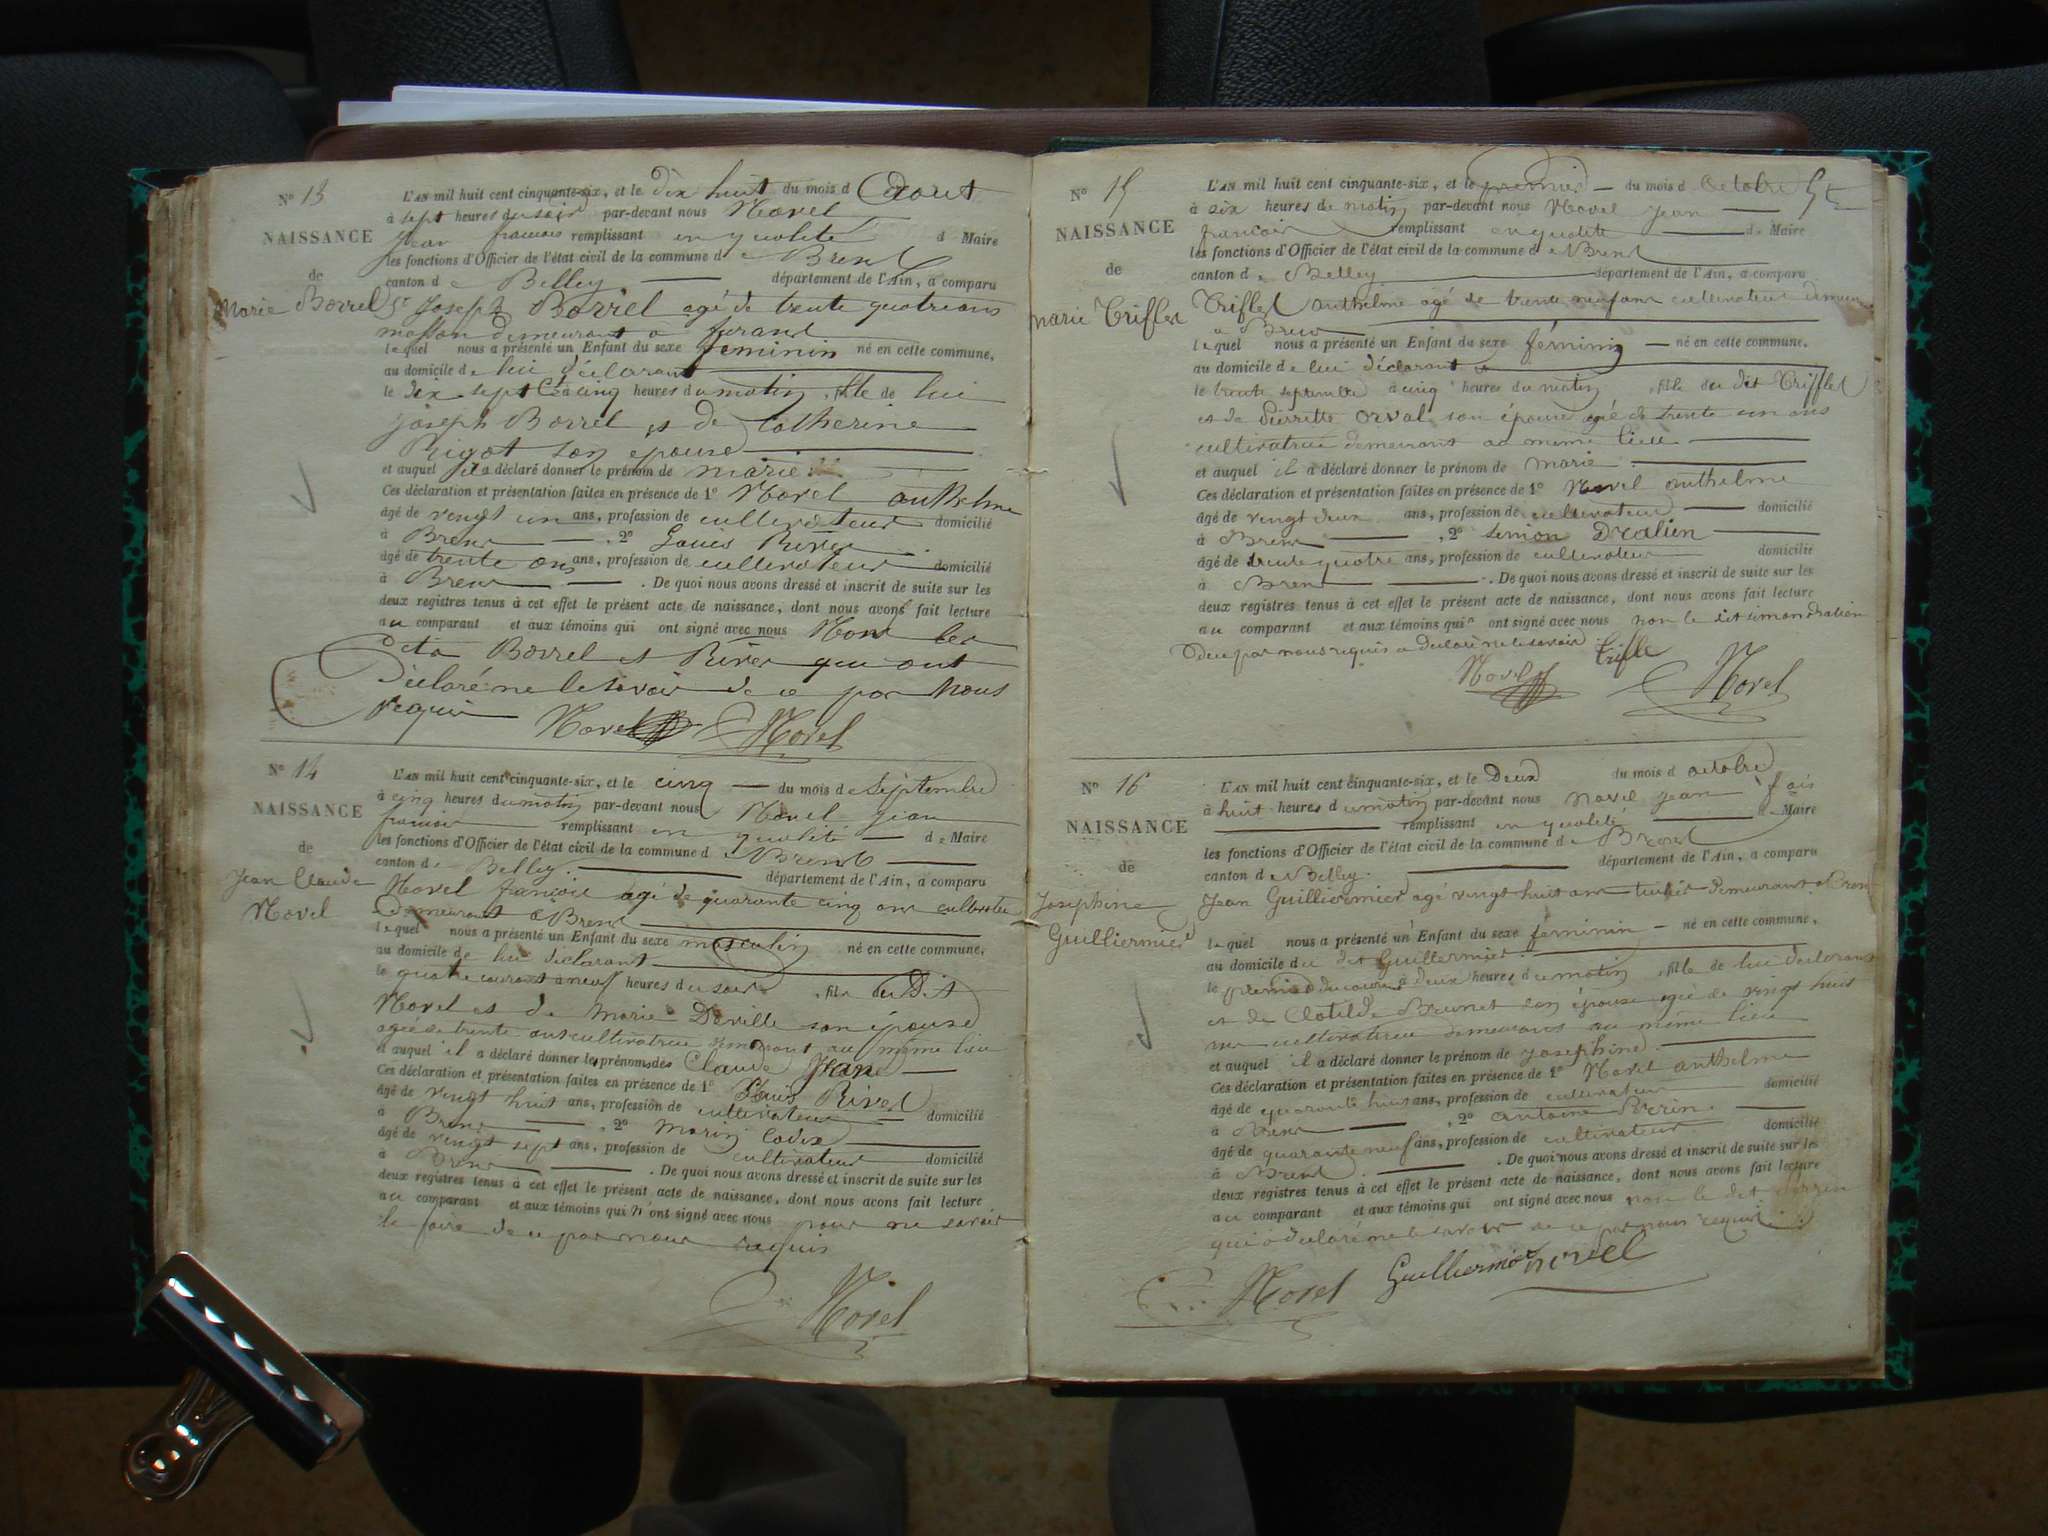 Nº 13
NAISSANCE
de
Marie Borrel
L'AN mil huit cent cinquante-six, et le dix huit du mois d Aout
à sept heures du soir par-devant nous Morel
Jean francois remplissant en qualité de Maire
les fonctions d'Officier de l'état civil de la commune de Brens
canton de Belley département de l'Ain, a comparu
Joseph Borrel agé de trente quatre ans
masson demeurant a
lequel nous a présenté un Enfant du sexe feminin né en cette commune,
au domicile de lui déclarant
le dix sept à cinq heures du matin, fille de lui
joseph Borrel et de Catherine
Rigot son epouse
et auquel il a déclaré donner le prénom de marie
Ces déclaration et présentation faites en présence de 1º Morel anthelme
âgé de vingt un ans, profession de cultivateur domicilié
à Brens, 2º Louis River
âgé de trente ans ans, profession de cultivateur domicilié
à Brens. De quoi nous avons dressé et inscrit de suite sur les
deux registres tenus à cet effet le présent acte de naissance, dont nous avons fait lecture
au comparant et aux témoins qui ont signé avec nous Non les
Borrel et River qui ont
Déclaré ne le savoir de ce par Nous
requis Morel Morel
Nº 14
NAISSANCE
de
Jean Claude
Morel
L'AN mil huit cent cinquante-six, et le cinq du mois de Septembre
à cinq heures du matin par-devant nous Morel jean
francois remplissant en qualité de Maire
les fonctions d'Officier de l'état civil de la commune de Brens
canton de Belley département de l'Ain, a comparu
Morel francois agé de quarante cinq ans
Demeurant à Brens
lequel nous a présenté un Enfant du sexe masculin né en cette commune,
au domicile de lui déclarant
le quatre courant à neuf heures du soir, fils du Dit
Morel et de Marie Deville son épouse
agée de trente ans cultivatrice demeurant au même lieu
et auquel il a déclaré donner le prénom des Claude Jean
Ces déclaration et présentation faites en présence de 1º Louis River
âgé de vingt huit ans, profession de cultivateur domicilié
à Brens, 2º Marin
âgé de vingt sept ans, profession de cultivateur domicilié
à Brens. De quoi nous avons dressé et inscrit de suite sur les
deux registres tenus à cet effet le présent acte de naissance, dont nous avons fait lecture
au comparant et aux témoins qui n'ont signé avec nous pour ne savoir
le faire de ce par nous requis
Morel
Nº 15
NAISSANCE
de
Marie Triflet
L'AN mil huit cent cinquante-six, et le premier du mois d Octobre
à six heures de matin par-devant nous Morel jean
francois remplissant en qualité de Maire
les fonctions d'Officier de l'état civil de la commune de Brens
canton de Belley département de l'Ain, a comparu
Triflet anthelme agé de trente neuf ans cultivateur
a Brens
lequel nous a présenté un Enfant du sexe féminin né en cette commune,
au domicile de lui déclarant
le trente septembre à cinq heures du matin, fille du dit Trifflet
et de Pierrette Orval son épouse agé de trente un ans
cultivatrice demeurant au même lieu
et auquel il a déclaré donner le prénom de marie
Ces déclaration et présentation faites en présence de 1º Morel anthelme
âgé de vingt deux ans, profession de cultivateur domicilié
à Brens, 2º Simon Dralien
âgé de trente quatre ans, profession de cultivateur domicilié
à Brens. De quoi nous avons dressé et inscrit de suite sur les
deux registres tenus à cet effet le présent acte de naissance, dont nous avons fait lecture
au comparant et aux témoins qui ont signé avec nous non le dit simon dralien
De ce par nous requis a déclaré ne le savoir Trifle
Morel Morel
Nº 16
NAISSANCE
de
Josephine
Guilliermier
L'AN mil huit cent cinquante-six, et le Deux du mois d octobre
à huit heures du matin par-devant nous Morel jean fois
remplissant en qualité de Maire
les fonctions d'Officier de l'état civil de la commune de Brens
canton de Belley département de l'Ain, a comparu
Jean Guilliermier agé vingt huit ans tuilier Demeurant a Brens
lequel nous a présenté un Enfant du sexe féminin né en cette commune,
au domicile du dit Guillermier
le premier du courant à deux heures du matin, fille de lui déclarant
et de Clotilde Brunet son épouse agée de vingt huit
ans cultivatrice demeurant au même lieu
et auquel il a déclaré donner le prénom de josephine
Ces déclaration et présentation faites en présence de 1º Morel anthelme
âgé de quarante huit ans, profession de cultivateur domicilié
à Brens, 2º antoine Perrin
âgé de quarante neuf ans, profession de cultivateur domicilié
à Brens. De quoi nous avons dressé et inscrit de suite sur les
deux registres tenus à cet effet le présent acte de naissance, dont nous avons fait lecture
au comparant et aux témoins qui ont signé avec nous non le dit perrin
qui a déclaré ne le savoir de ce par nous requis
Morel Guilliermier morel